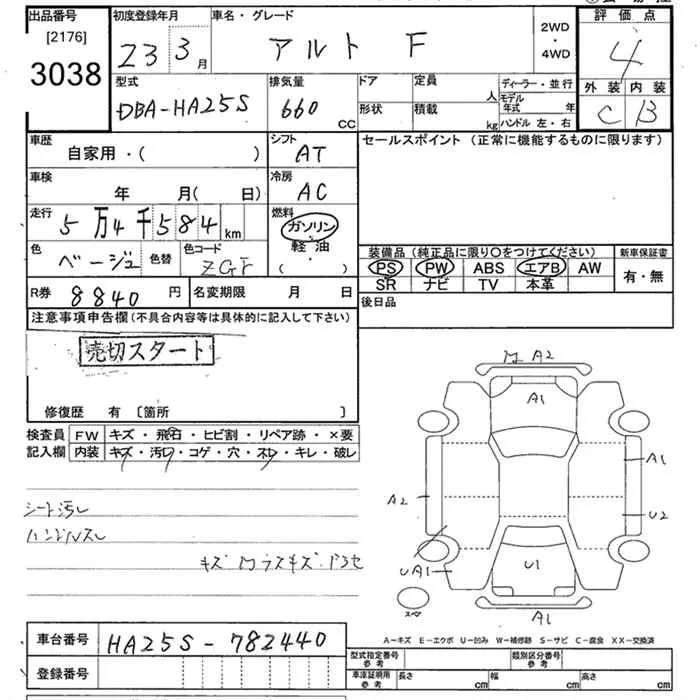 出品番号 初度登録年月 車名・グレード 2WD・4WD 評価点
[2176]
3038 23 3月 アルト F 4
型式 排気量 ドア 定員 人 ディーラー・並行 外装 内装
DBA-HA25S 660 CC 形状 積載 kg モデル年式 年 C B
ハンドル 左・右
車歴 自家用・( ) シフト AT セールスポイント (正常に機能するものに限ります)
車検 年 月( 日) 冷房 AC
走行 5万4千584km 燃料 ガソリン
軽油
( )
色 ベージュ 色替 色コード ZGF
装備品 (純正品に限り○をつけてください) 新車保証書
PS PW ABS エアB AW 有・無
SR ナビ TV 本革
R券 8840円 名変期限 月 日 後日品
注意事項申告欄 (不具合内容等は具体的に記入して下さい)
売切スタート
修復歴 有 〔箇所 〕
検査員 FW キズ・飛石・ヒビ割・リペア跡・×要
記入欄 内装 キズ・汚レ・コゲ・穴・スレ・キレ・破レ
シート汚レ
ハンドルスレ
A2
A1
A1
A2
U2
UA1
U1
A1
スペア
A-キズ E-エクボ U-凹み W-補修跡 S-サビ C-腐食 XX-交換済
車台番号 HA25S-782440
登録番号
型式指定番号 参考 類別区分番号 参考
車庫証明用 参考 長さ cm 幅 cm 高さ cm